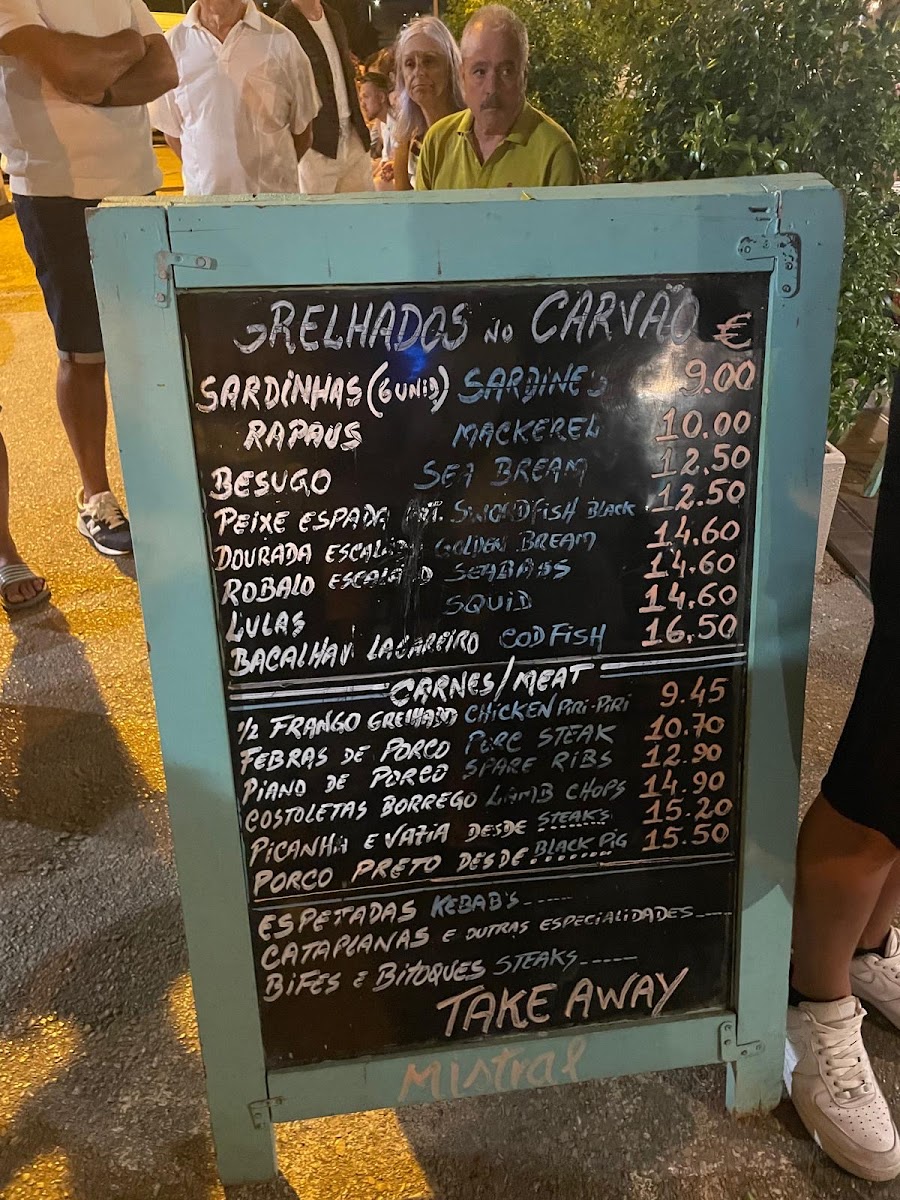 GRELHADOS NO CARVÃO €
SARDINHAS (6 UNID) SARDINES 9.00
RAPAUS MACKEREL 10.00
BESUGO SEA BREAM 12.50
PEIXE ESPADA SWORDFISH BLACK 12.50
DOURADA GOLDEN BREAM 14.60
ROBALO ESCALADO SEABASS 14.60
LULAS SQUID 14.60
BACALHAU LAGAREIRO CODFISH 16.50
CARNES/MEAT
1/2 FRANGO GRELHADO CHICKEN PIRI-PIRI 9.45
FEBRAS DE PORCO PORC STEAK 10.70
PIANO DE PORCO SPARE RIBS 12.90
COSTOLETAS BORREGO LAMB CHOPS 14.90
PICANHA E VAZIA DESDE STEAKS 15.20
PORCO PRETO DESDE BLACK PIG 15.50
ESPETADAS KEBAB'S -----
CATAPLANAS E OUTRAS ESPECIALIDADES ----
BIFES E BITOQUES STEAKS -----
TAKE AWAY
Mistral